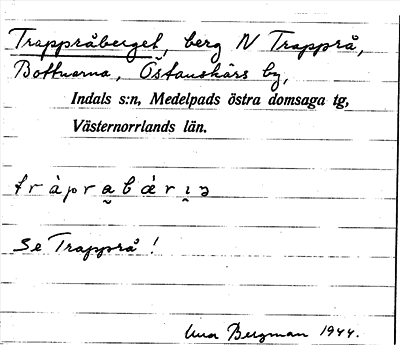 Trappråberget, berg N Trapprå,
Bottnarna, Östanskärs by,
Indals s:n, Medelpads östra domsaga tg,
Västernorrlands län.
Se Trapprå!
Bergman 1944.